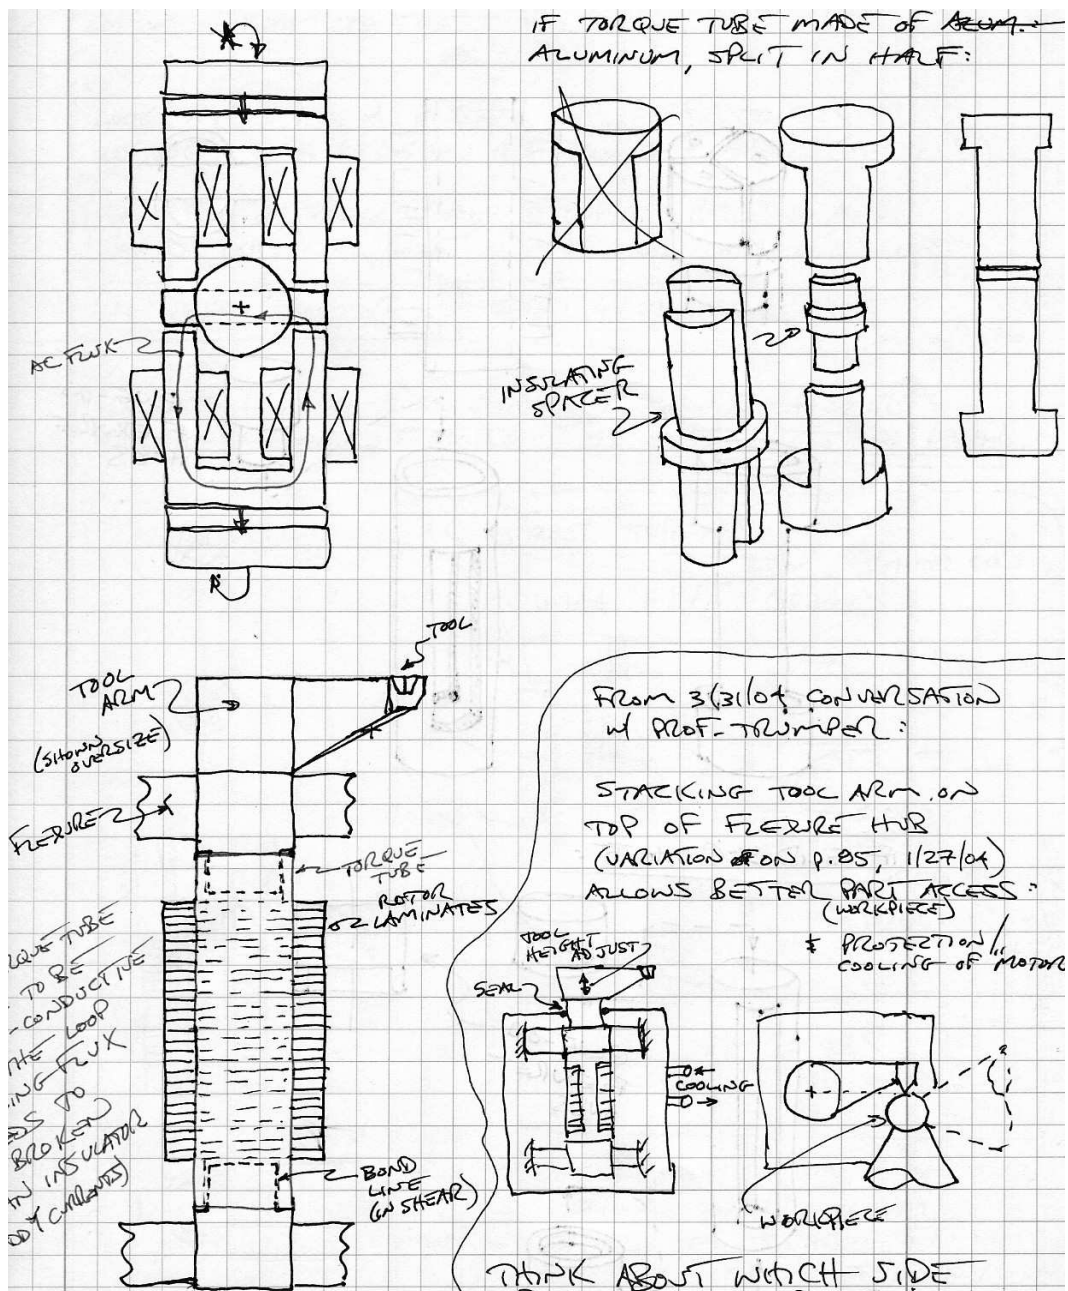 IF TORQUE TUBE MADE OF ALUM.
ALUMINUM, SPLIT IN HALF:
AC FLUX
INSULATING
SPACER
TOOL
TOOL
ARM
(SHOWN
OVERSIZE)
FLEXURE
TORQUE
TUBE
ROTOR
LAMINATES
TUBE
TO BE
CONDUCTIVE
THE LOOP
FLUX
TO
BROKEN
AN INSULATOR
CURRENTS)
BOND
LINE
(IN SHEAR)
FROM 3/31/04 CONVERSATION
W/ PROF. TRUMPER:
STACKING TOOL ARM ON
TOP OF FLEXURE HUB
(VARIATION ON p.85, 1/27/04)
ALLOWS BETTER PART ACCESS:
(WORKPIECE)
& PROTECTION/
COOLING OF MOTOR
TOOL
HEIGHT
ADJUST
SEAL
COOLING
WORKPIECE
THINK ABOUT WHICH SIDE